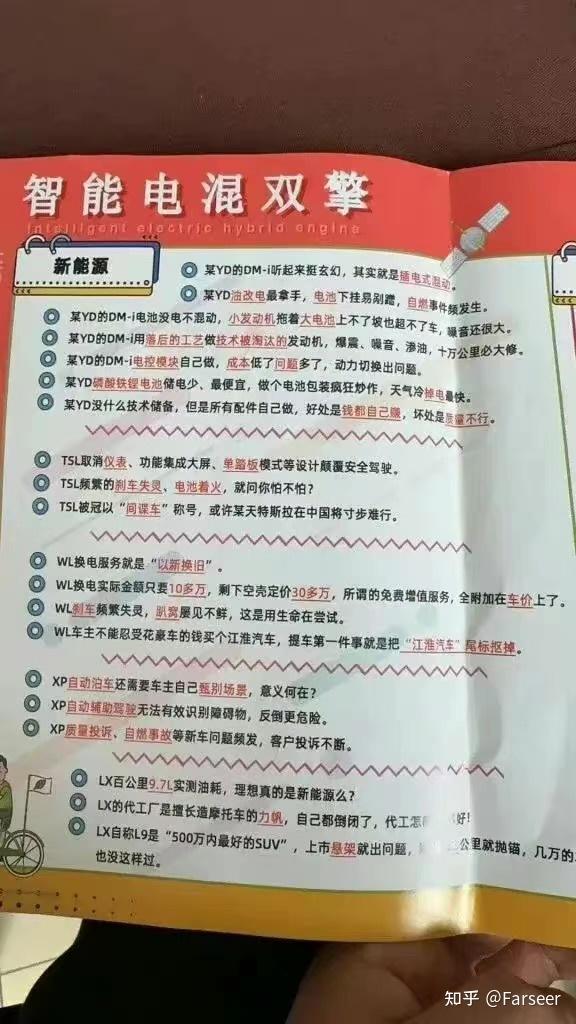 智能电混双擎
intelligent electric hybrid engine
新能源
某YD的DM-i听起来挺玄幻，其实就是插电式混动。
某YD油改电最拿手，电池下挂易剐蹭，自燃事件频发生。
某YD的DM-i电池没电不混动，小发动机拖着大电池上不了坡也超不了车，噪音还很大。
某YD的DM-i用落后的工艺做技术被淘汰的发动机，爆震、噪音、渗油，十万公里必大修。
某YD的DM-i电控模块自己做，成本低了问题多了，动力切换出问题。
某YD磷酸铁锂电池储电少、最便宜，做个电池包装疯狂炒作，天气冷掉电最快。
某YD没什么技术储备，但是所有配件自己做，好处是钱都自己赚，坏处是质量不行。
TSL取消仪表、功能集成大屏、单踏板模式等设计颠覆安全驾驶。
TSL频繁的刹车失灵、电池着火，就问你怕不怕？
TSL被冠以“间谍车”称号，或许某天特斯拉在中国将寸步难行。
WL换电服务就是“以新换旧”。
WL换电实际金额只要10多万，剩下空壳定价30多万，所谓的免费增值服务，全附加在车价上了。
WL刹车频繁失灵，趴窝屡见不鲜，这是用生命在尝试。
WL车主不能忍受花豪车的钱买个江淮汽车，提车第一件事就是把“江淮汽车”尾标抠掉。
XP自动泊车还需要车主自己甄别场景，意义何在？
XP自动辅助驾驶无法有效识别障碍物，反倒更危险。
XP质量投诉、自燃事故等新车问题频发，客户投诉不断。
LX百公里9.7L实测油耗，理想真的是新能源么？
LX的代工厂是擅长造摩托车的力帆，自己都倒闭了，代工怎 好！
LX自称L9是“500万内最好的SUV”，上市悬架就出问题， 公里就抛锚，几万的
也没这样过。
知乎 @Farseer